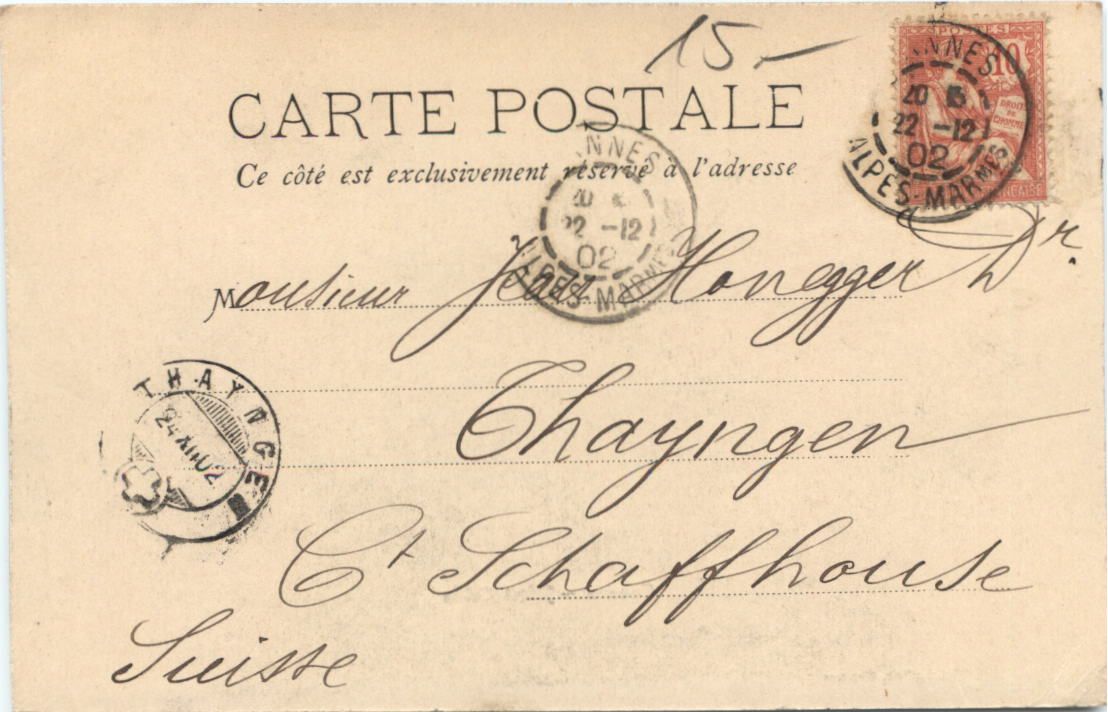 15.-
CARTE POSTALE
Ce côté est exclusivement réservé à l'adresse
POSTES
10
DROITS
DE
L'HOMME
ANNES
20
22 -12
02
ALPES-MARMES
ANNES
22 -12
02
ALPES-MARMES
Monsieur Honegger Dr.
Thayngen
Ct Schaffhouse
Suisse
THAYNGEN
24 XII 02